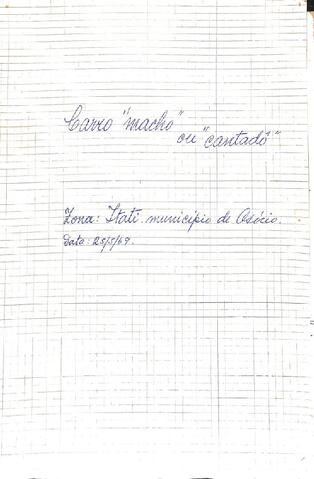 Carro "macho"
ou "cantadô"
Zona: Itati. município de Osório.
Data: 25/5/69.